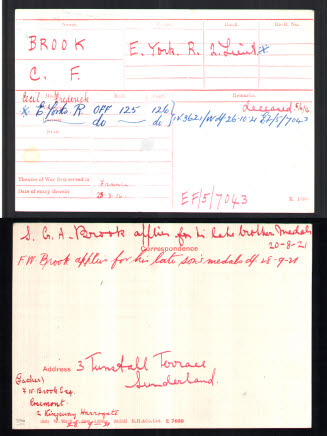 Name. Corps. Rank. Regtl. No.
BROOK E. York. R. 2.Lieut *
C. F.
Cecil Frederick
Remarks.
Deceased
* E. Yorks R OFF 125 126 IV 3621/W df 26-10-21 EF/5/7043
do do do
Theatre of War first served in France
Date of entry therein
EF/5/7043
S. G. A. Brook applies for his late brother medals
20-8-21
Correspondence
F W Brook applies for his late son's medals df 28-9-21
Address 3 Tunstall Terrace
Sunderland.
(Father)
F W Brook Esq.
Rosemont
2 Kingsway Harrogate
28-9-21